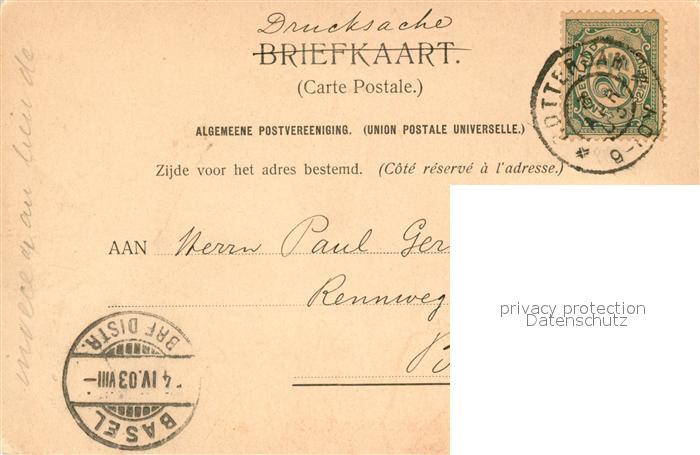 Drucksache
BRIEFKAART.
(Carte Postale.)
ALGEMEENE POSTVEREENIGING. (UNION POSTALE UNIVERSELLE.)
Zijde voor het adres bestemd. (Côté réservé à l'adresse.)
AAN Herrn Paul Ger
Rennweg
privacy protection
Datenschutz
BRF DISTR.
4 IV.03 VIII–
BASEL
ROTTERDAM
2½
au lieu de